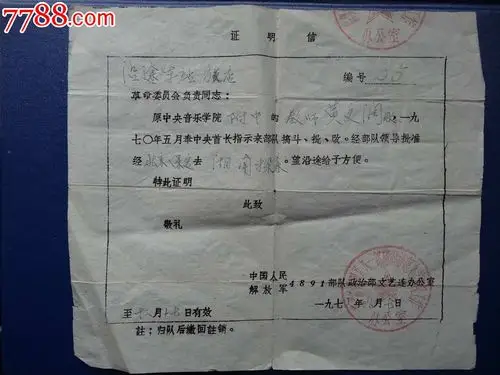 7788.com
办公室
证明信
沿途军组旅店 编号
革命委员会负责同志：
原中央音乐学院附中的教师黄
七〇年五月奉中央首长指示来部队搞斗、批、改。经部队领导批准
经 去湖南 。望沿途给予方便。
特此证明
此致
敬礼
中国人民
解放军 4891部队政治部文艺连办公室
一九七 年 月 日
至十 月 日有效
註：归队后缴回註销。
办公室
7788.com